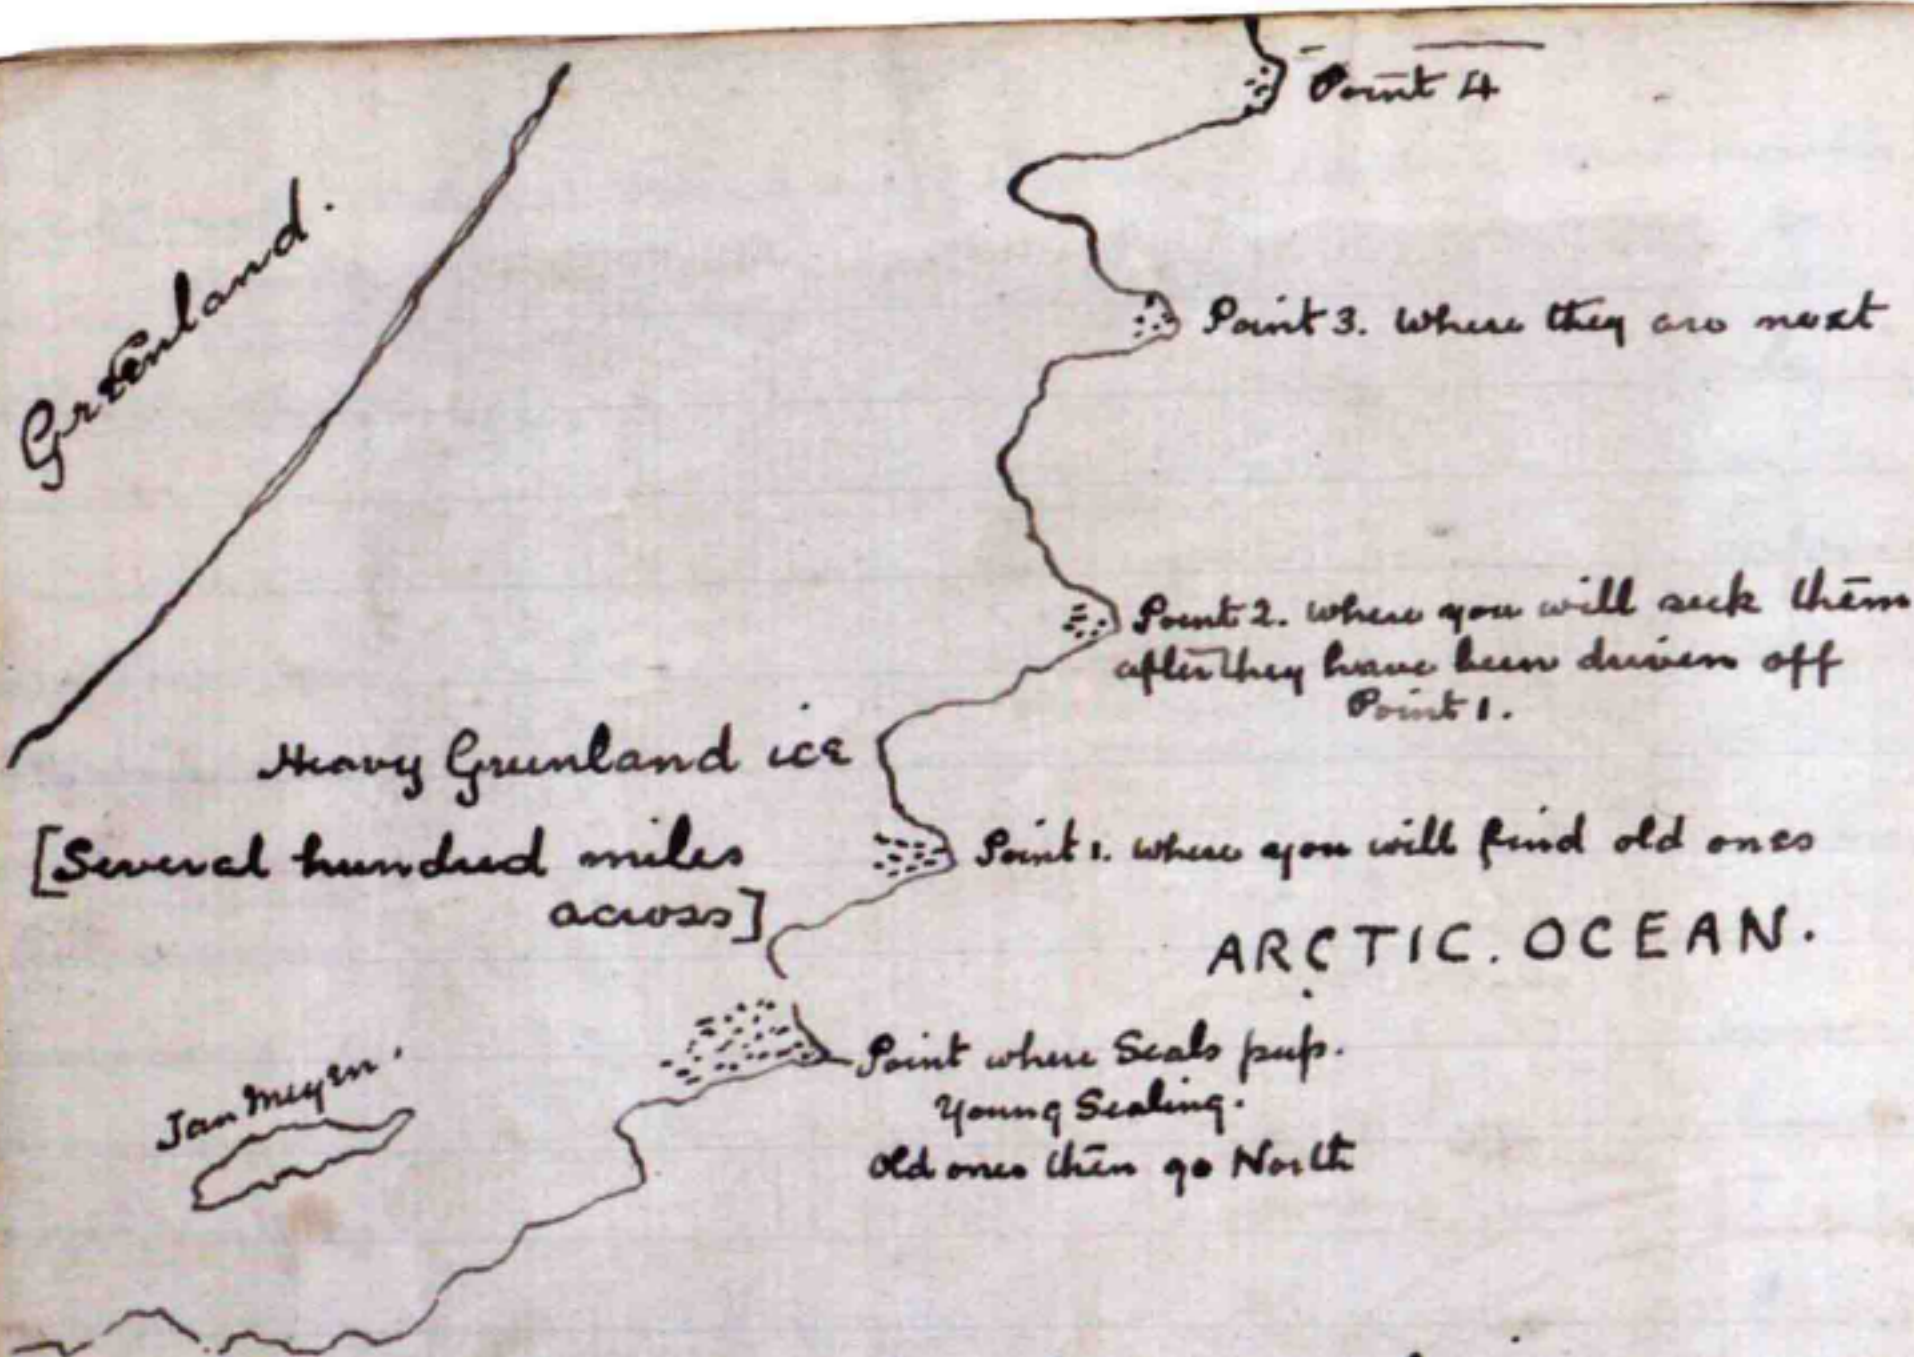 Point 4
Greenland.
Point 3. Where they are next
Point 2. where you will seek them
after they have been driven off
Point 1.
Heavy Greenland ice
[Several hundred miles
across]
Point 1. where you will find old ones
ARCTIC. OCEAN.
Point where Seals pup.
Young Sealing.
Old ones then go North
Jan Meyen.